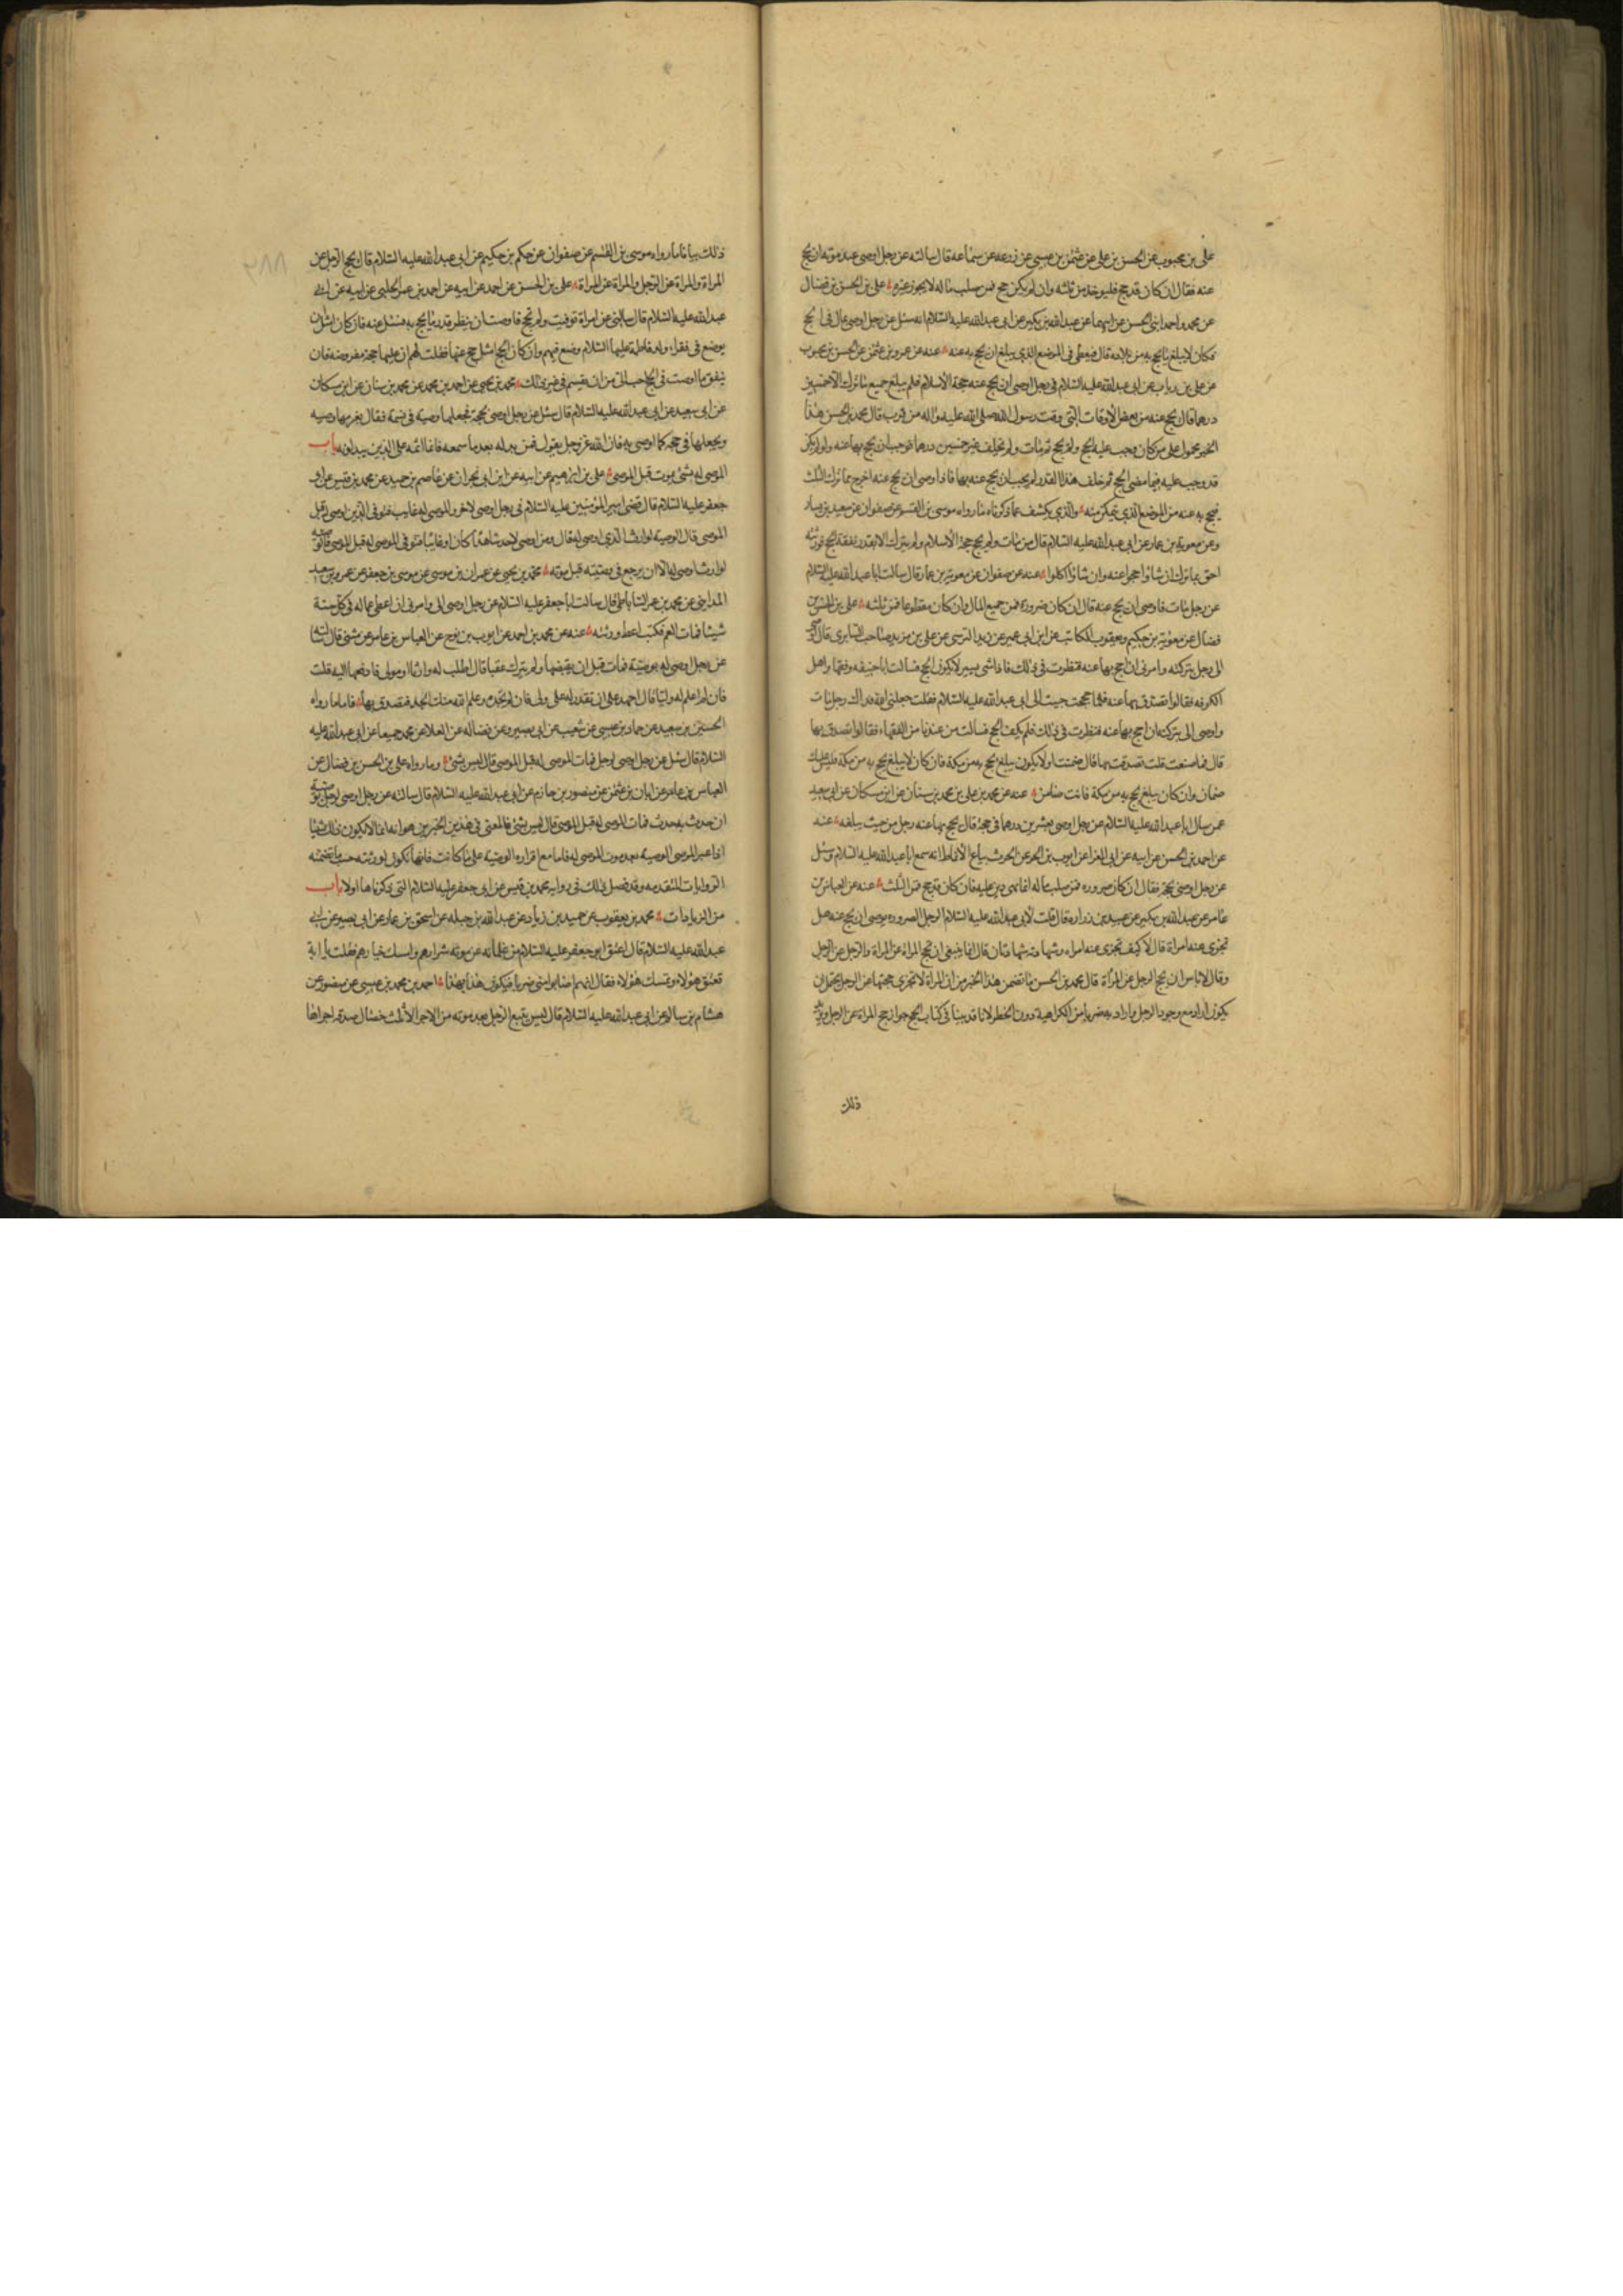 علي بن محبوب عن الحسن بن علي عن عثمن بن عيسى عن زرعه عن سماعه قال سالته عن رجل اوصى عند موته ان يحج
عنه فقال ان كان قد حج فليوخذ من ثلثه وان لم يكن حج فمن صلب ماله لا يجوز غيره علي بن الحسن بن فضال
عن محمد واحمد ابني الحسن عن ابيهما عن عبدالله بن بكير عن ابي عبدالله عليه السلام انه سئل عن رجل اوصى بمال في الحج
فكان لا يبلغ ما يحج به من بلاده قال فيعطى في الموضع الذي يبلغ ان يحج به عنه عنه عن عمرو بن عثمن عن الحسن بن محبوب
عن علي بن رياب عن ابي عبدالله عليه السلام في رجل اوصى ان يحج عنه حجة الاسلام فلم يبلغ جميع ما ترك الا خمسين
درهما قال يحج عنه من بعض الاوقات التي وقت رسول الله صلى الله عليه واله من قرب قال محمد بن الحسن هذا
الخبر محمول على من كان وجب عليه الحج ولم يحج ثم مات ولم يخلف غير خمسين درهما فوجب ان يحج بها عنه ولو لم يكن
قد وجب عليه فيما مضى الحج ثم خلف هذا القدر لم يجب ان يحج عنه بها فاذا اوصى ان يحج عنه اخرج مما ترك الثلث
فيحج به عنه من الموضع الذي يمكن منه والذي يكشف عما ذكرناه ما رواه موسى بن القسم عن صفوان عن سعيد بن يسار
وعن معوية بن عمار عن ابي عبدالله عليه السلام قال من مات ولم يحج حجة الاسلام ولم يترك الا بقدر نفقة الحج فورثته
احق بما ترك ان شاؤا حجوا عنه وان شاؤا اكلوا عنه عن صفوان عن معوية بن عمار قال سالت ابا عبدالله عليه السلام
عن رجل مات فاوصى ان يحج عنه قال ان كان صرورة فمن جميع المال وان كان متطوعا فمن ثلثه علي بن الحسن بن
فضال عن معوية بن حكيم ويعقوب الكاتب عن ابن ابي عمير عن زيد النرسي عن علي بن مزيد صاحب السابري قال اوصى
الى رجل بتركته وامرني ان احج بها عنه فنظرت في ذلك فاذا شى يسير لا يكون الحج فسالت ابا حنيفه وفقها واهل
الكوفه فقالوا تصدق بها عنه فلما حججت جيت الى ابي عبدالله عليه السلام فقلت جعلني الله فداك رجل مات
واوصى الى بتركته ان احج بها عنه فنظرت في ذلك فلم يكف الحج فسالت من عندنا من الفقهاء فقالوا تصدق بها
قال فما صنعت قلت تصدقت بها قال ضمنت او لا يكون يبلغ يحج به من مكة فان كان لا يبلغ يحج به من مكة فليس عليك
ضمان وان كان يبلغ يحج به من مكة فانت ضامن عنه عن محمد بن علي بن محمد بن سنان عن ابن مسكان عن ابي سعيد
عمن سال ابا عبدالله عليه السلام عن رجل اوصى بعشرين درهما في حجة قال يحج بها عنه رجل من حيث يبلغه عنه
عن احمد بن الحسن عن ابيه عن ابي المغرا عن ايوب بن الحر عن الحرث بياع الانماط انه سمع ابا عبدالله عليه السلام وسئل
عن رجل اوصى بحجة فقال ان كان صروره فمن صلب ماله انما هي دين عليه فان كان قد حج فمن الثلث عنه عن العباس بن
عامر عن عبدالله بن بكير عن عبيد بن زراره قال قلت لابي عبدالله عليه السلام الرجل الصروره يوصي ان يحج عنه هل
تجزى عنه امراة قال لا كيف تجزى عنه امراه وشهادته شهادتان قال انما ينبغي ان تحج المراة عن المراة والرجل عن الرجل
وقال لا باس ان يحج الرجل عن المرأة قال محمد بن الحسن ما تضمن هذا الخبر من ان المراة لا تجزى حجتها عن الرجل يحتمل ان
يكون اراد مع وجود الرجل واراد به ضربا من الكراهية دون الحظر لانا قد بينا في كتاب الحج جواز حج المراة عن الرجل ويزيد
ذلك
ذلك بيانا ما رواه موسى بن القسم عن صفوان عن حكم بن حكيم عن ابي عبدالله عليه السلام قال يحج الرجل عن
المراة والمراة عن الرجل والمراة عن المراة علي بن الحسن عن احمد عن ابيه عن احمد بن عمر الحلبي عن ابيه عن ابي
عبدالله عليه السلام قال سالني عن امراة توفيت ولم تحج فاوصت ان ينظر قدر ما يحج به فسئل عنه فان كان امثل ان
يوضع في فقراء ولد فاطمة عليها السلام وضع فيهم وان كان الحج امثل حج عنها فقلت لهم ان عليها حجة مفروضه فان
ينفق ما اوصت في الحج احب الى من ان يقسم في غير ذلك محمد بن يحيى عن احمد بن محمد عن محمد بن سنان عن ابن مسكان
عن ابي سعيد عن ابي عبدالله عليه السلام قال سئل عن رجل اوصى بحجة فجعلها وصيه في نسمة فقال يغرمها وصيه
ويجعلها في حجه كما اوصى به فان الله عز وجل يقول فمن بدله بعد ما سمعه فانما اثمه على الذين يبدلونه باب
الموصى له بشئ يموت قبل الموصى علي بن ابرهيم عن ابيه عن ابن ابي نجران عن عاصم بن حميد عن محمد بن قيس عن ابي
جعفر عليه السلام قال قضى امير المؤمنين عليه السلام في رجل اوصى لاخر والموصى له غايب فتوفى الذي اوصى له قبل
الموصى قال الوصية لوارث الذي اوصى له قال ومن اوصى لاحد شاهدا كان او غائبا فتوفى الموصى له قبل الموصى فالوصية
لوارث اوصى له الا ان يرجع في وصيته قبل موته محمد بن يحيى عن عمران بن موسى عن موسى بن جعفر عن عمرو بن سعيد
المدايني عن محمد بن عمر الساباطي قال سالت ابا جعفر عليه السلام عن رجل اوصى الى وامرني ان اعطى عماله في كل سنة
شيئا فمات العم فكتب اعط ورثته عنه عن محمد بن احمد عن ايوب بن نوح عن العباس بن عامر عن مثنى قال سالته
عن رجل اوصى له بوصية فمات قبل ان يقبضها ولم يترك عقبا قال اطلب له وارثا او مولى فادفعها اليه قلت
فان لم اعلم له وليا قال اجهد على ان تقدر له على ولى فان لم تجده وعلم الله منك الجد فتصدق بها فاما ما رواه
الحسين بن سعيد عن حماد بن عيسى عن شعيب عن ابي بصير وعن فضاله عن العلا عن محمد جميعا عن ابي عبدالله عليه
السلام قال سئل عن رجل اوصى لرجل فمات الموصى له قبل الموصى قال ليس بشئ وما رواه علي بن الحسن بن فضال عن
العباس بن عامر عن ابان بن عثمن عن منصور بن حازم عن ابي عبدالله عليه السلام قال سالته عن رجل اوصى لرجل بوصية
ان حدث به حدث فمات الموصى له قبل الموصى قال ليس بشئ فالمعنى في هذين الخبرين هو انه انما لا يكون ذلك شيئا
اذا غير الموصى الوصية بعد موت الموصى له فاما مع اقراره الوصية على ما كانت فانها تكون لورثته حسب ما تضمنته
الروايات المتقدمه وقد فصل ذلك في رواية محمد بن قيس عن ابي جعفر عليه السلام التي ذكرناها اولا باب
من الزيادات محمد بن يعقوب عن حميد بن زياد عن عبدالله بن جبله عن اسحق بن عمار عن ابي بصير عن ابي
عبدالله عليه السلام قال اعتق ابو جعفر عليه السلام من غلمانه عن موته شرارهم وامسك خيارهم فقلت يا ابة
تعتق هؤلاء وتمسك هؤلاء فقال انهم اصابوا مني ضربا فيكون هذا بهذا احمد بن محمد بن عيسى عن منصور عن
هشام بن سالم عن ابي عبدالله عليه السلام قال ليس يتبع الرجل بعد موته من الاجر الا ثلث خصال صدقة اجراها